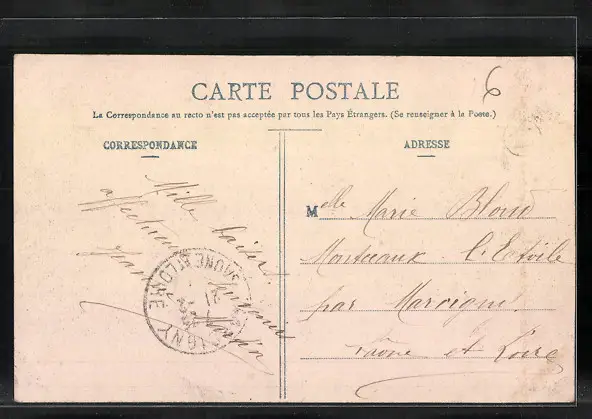 6
CARTE POSTALE
La Correspondance au recto n'est pas acceptée par tous les Pays Étrangers. (Se renseigner à la Poste.)
CORRESPONDANCE
ADRESSE
Mille baisers
affectueux
Jean
Martin
SAONE-ET-LOIRE
Melle Marie Blond
Montceaux-l'Etoile
par Marcigny
Saone et Loire